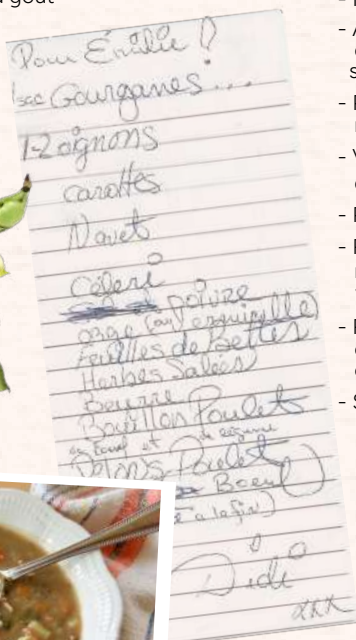 Pour Émilie !
1 sac Gourganes...
1-2 oignons
carottes
Navet
Céleri
poivre
orge (ou vermicelle)
Feuilles de Bettes
Herbes Salées
Beurre
Bouillon Poulet
et de légume
Poulet
Boeuf)
à la fin)
Didi
xxx